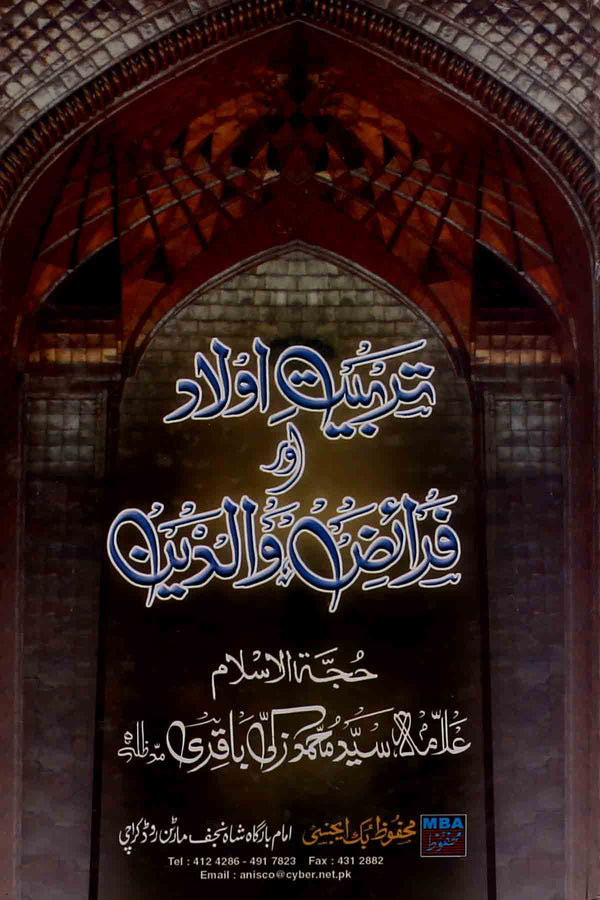 تربیتِ اولاد
اور
فرائضِ والدین
حُجّۃ الاسلام
علّامہ سیّد محمّد زکی باقری مدّظلہ
MBA
محفوظ
محفوظ بک ایجنسی امام بارگاہ شاہ نجف مارٹن روڈ کراچی
Tel : 412 4286 - 491 7823 Fax : 431 2882
Email : anisco@cyber.net.pk